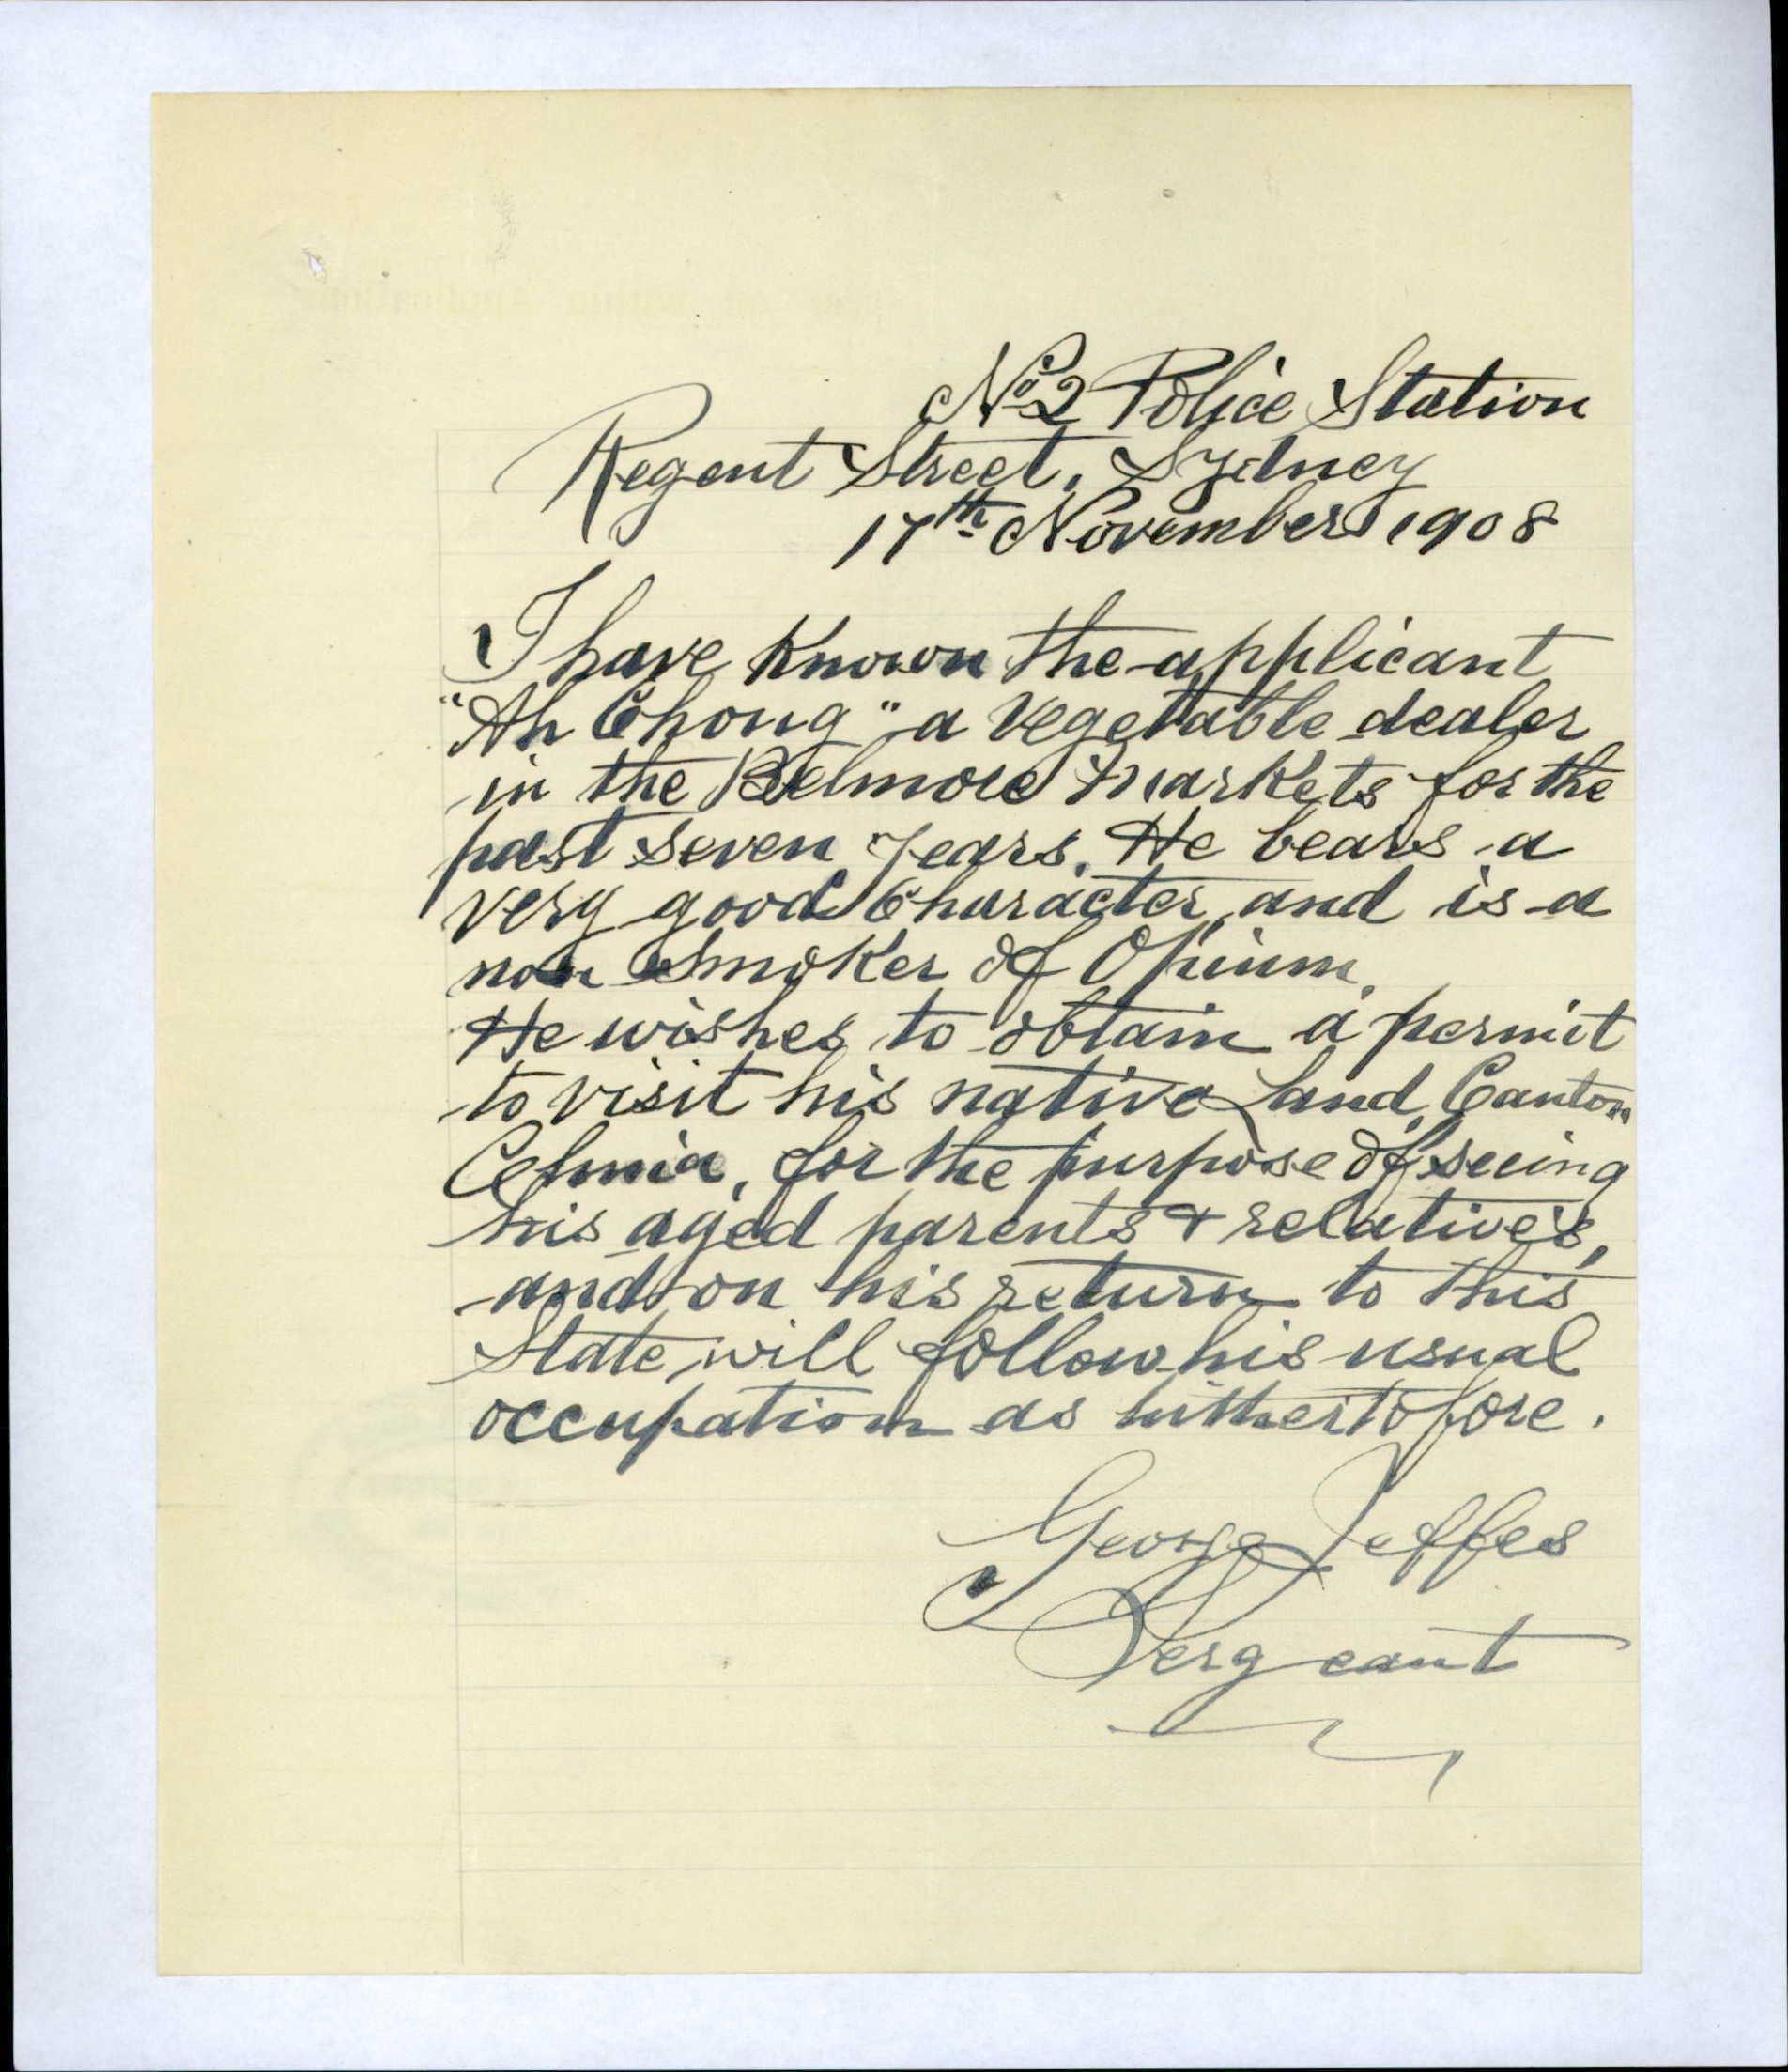 No 2 Police Station
Regent Street, Sydney
17th November 1908
I have Known the applicant
"Ah Chong" a vegetable dealer
in the Belmore Markets for the
past seven years. He bears a
very good Character and is a
non Smoker of Opium.
He wishes to obtain a permit
to visit his native Land, Canton
China, for the purpose of seeing
his aged parents & relatives,
and on his return to this
State will follow his usual
occupation as hithertofore.
George Jeffes
Sergeant